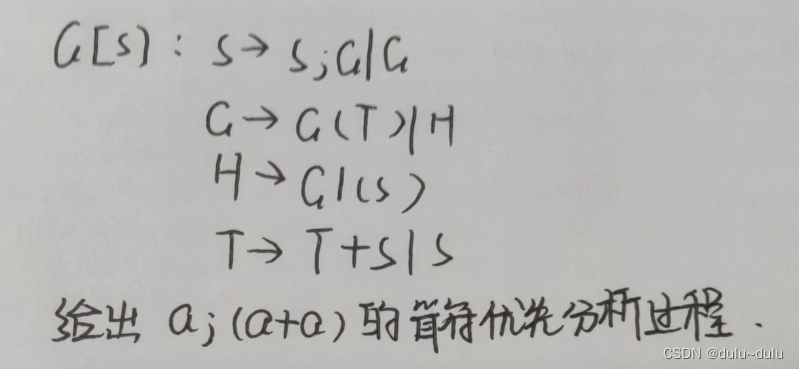 G[S]: S→S;G|G
G→G(T)|H
H→G|(S)
T→T+S|S
给出 a;(a+a) 的算符优先分析过程.
CSDN @dulu~dulu